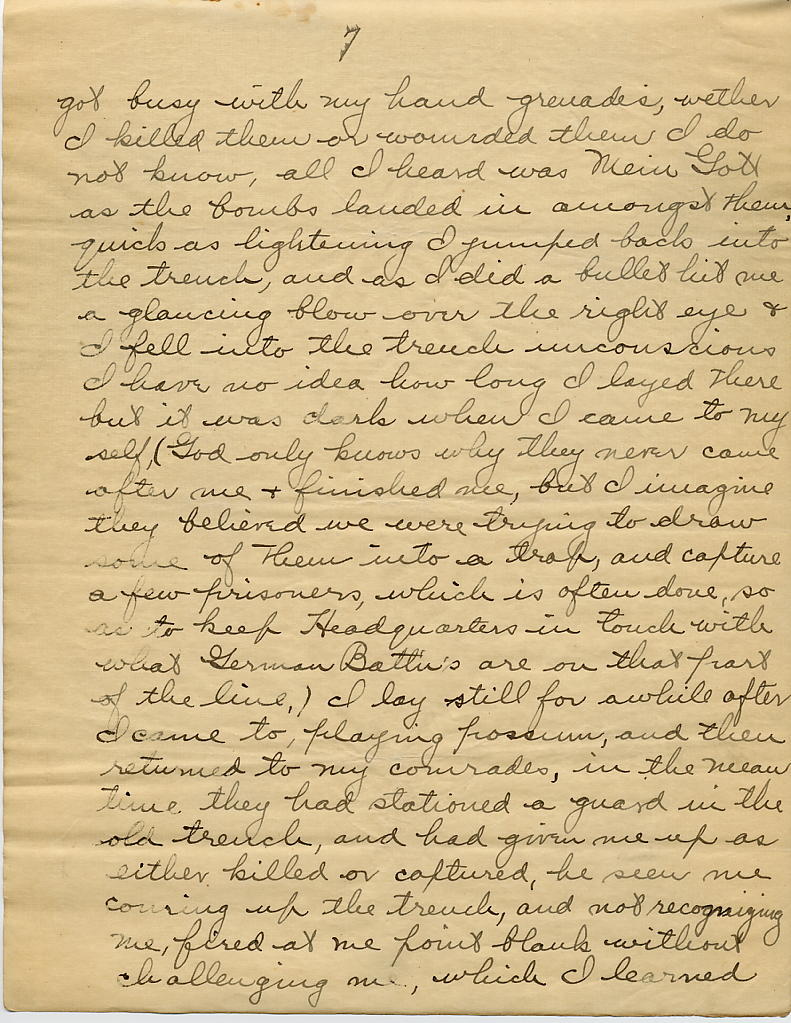 7
got busy with my hand grenades, wether
I killed them or wounded them I do
not know, all I heard was Mein Gott
as the bombs landed in amongst them,
quick as lightening I jumped back into
the trench, and as I did a bullet hit me
a glancing blow over the right eye &
I fell into the trench unconscious
I have no idea how long I layed there
but it was dark when I came to my
self, (God only knows why they never came
after me & finished me, but I imagine
they believed we were trying to draw
some of them into a trap, and capture
a few prisoners, which is often done, so
as to keep Headquarters in touch with
what German Battn's are on that part
of the line,) I lay still for awhile after
I came to, playing possum, and then
returned to my comrades, in the mean
time they had stationed a guard in the
old trench, and had given me up as
either killed or captured, he seen me
coming up the trench, and not recognizing
me, fired at me point blank without
challenging me, which I learned